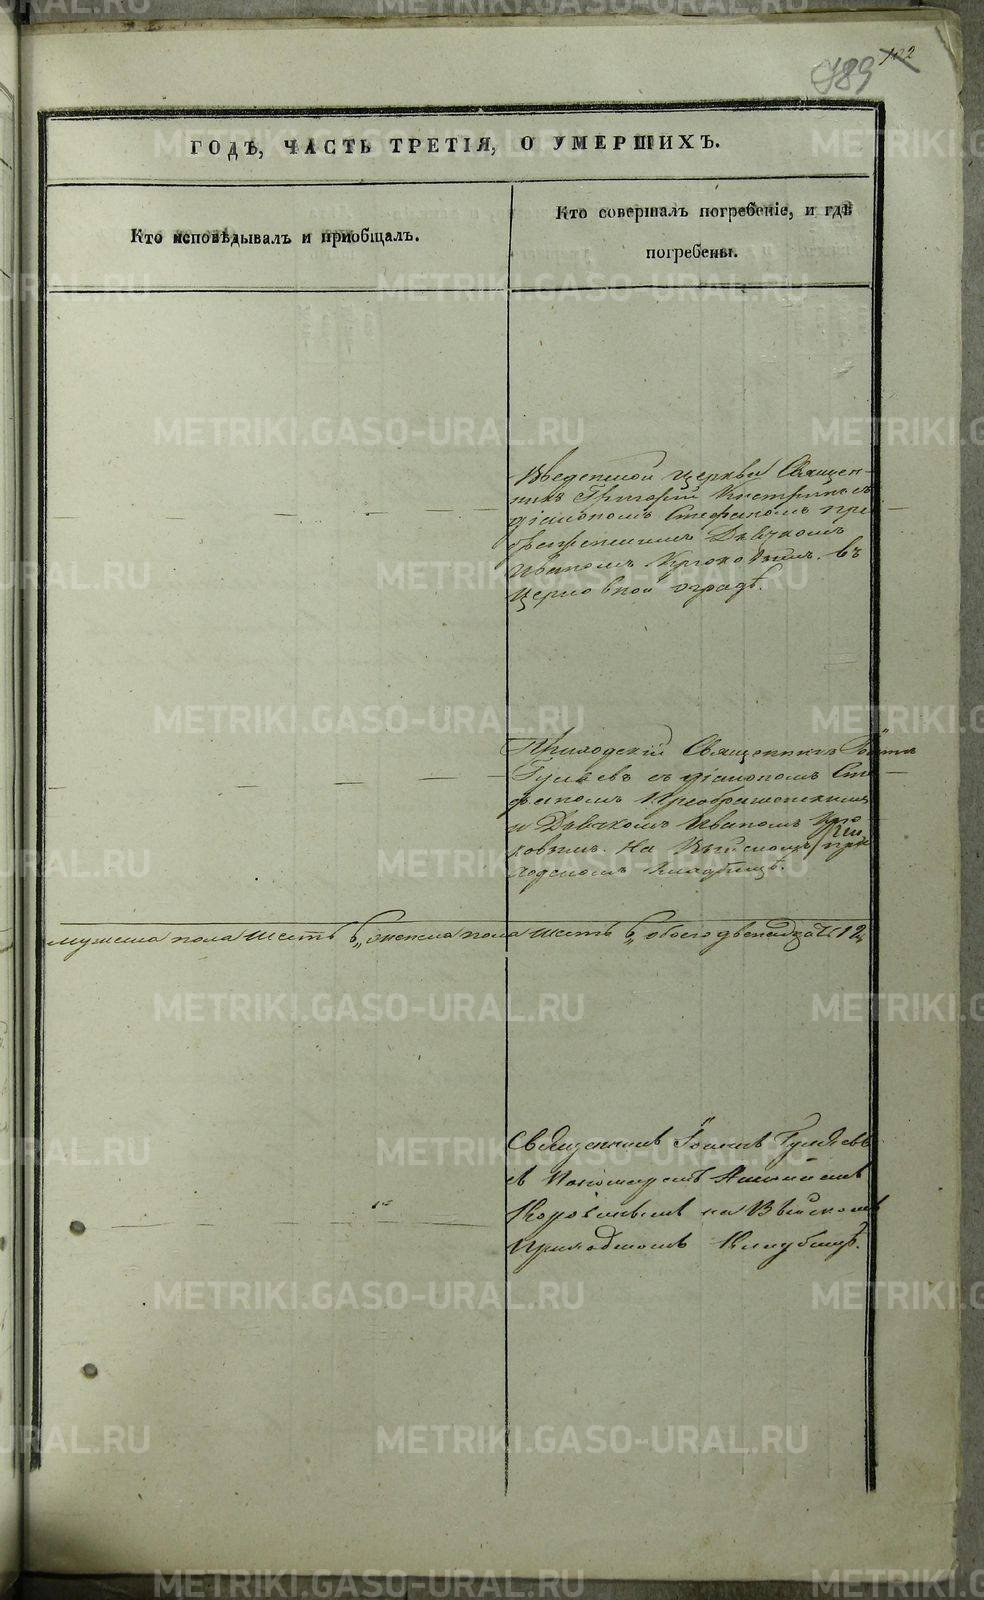 102
189
ГОДѢ, ЧАСТЬ ТРЕТІЯ, О УМЕРШИХЪ.
Кто исповѣдывалъ и пріобщалъ.
Кто совершалъ погребеніе, и гдѣ
погребены.
Введенской церкви Священ-
никъ Григорій съ
діакономъ Стефаномъ Прео
браженскимъ Дьячкомъ
Иваномъ Крюковымъ въ
Церковной оградѣ.
Приходскій Священникъ Іоаннъ
Гуляевъ съ діакономъ Сте
фаномъ Преображенскимъ
и Дьячкомъ Иваномъ Крю
ковымъ. На Выйскомъ при
ходскомъ Кладбищѣ.
мужеска пола шесть 6, женска пола шесть 6, обоего двенадцать 12,
Священникъ Іоаннъ Гуляевъ
съ Пономаремъ
на Выйскомъ
Приходскомъ Кладбищѣ.
METRIKI.GASO-URAL.RU